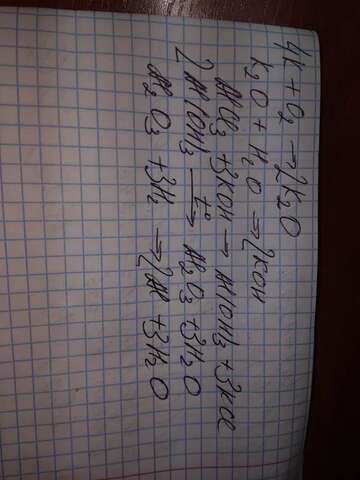 4K + O₂ → 2K₂O
K₂O + H₂O → 2KOH
AlCl₃ + 3KOH → Al(OH)₃ + 3KCl
2Al(OH)₃ —t°→ Al₂O₃ + 3H₂O
Al₂O₃ + 3H₂ → 2Al + 3H₂O